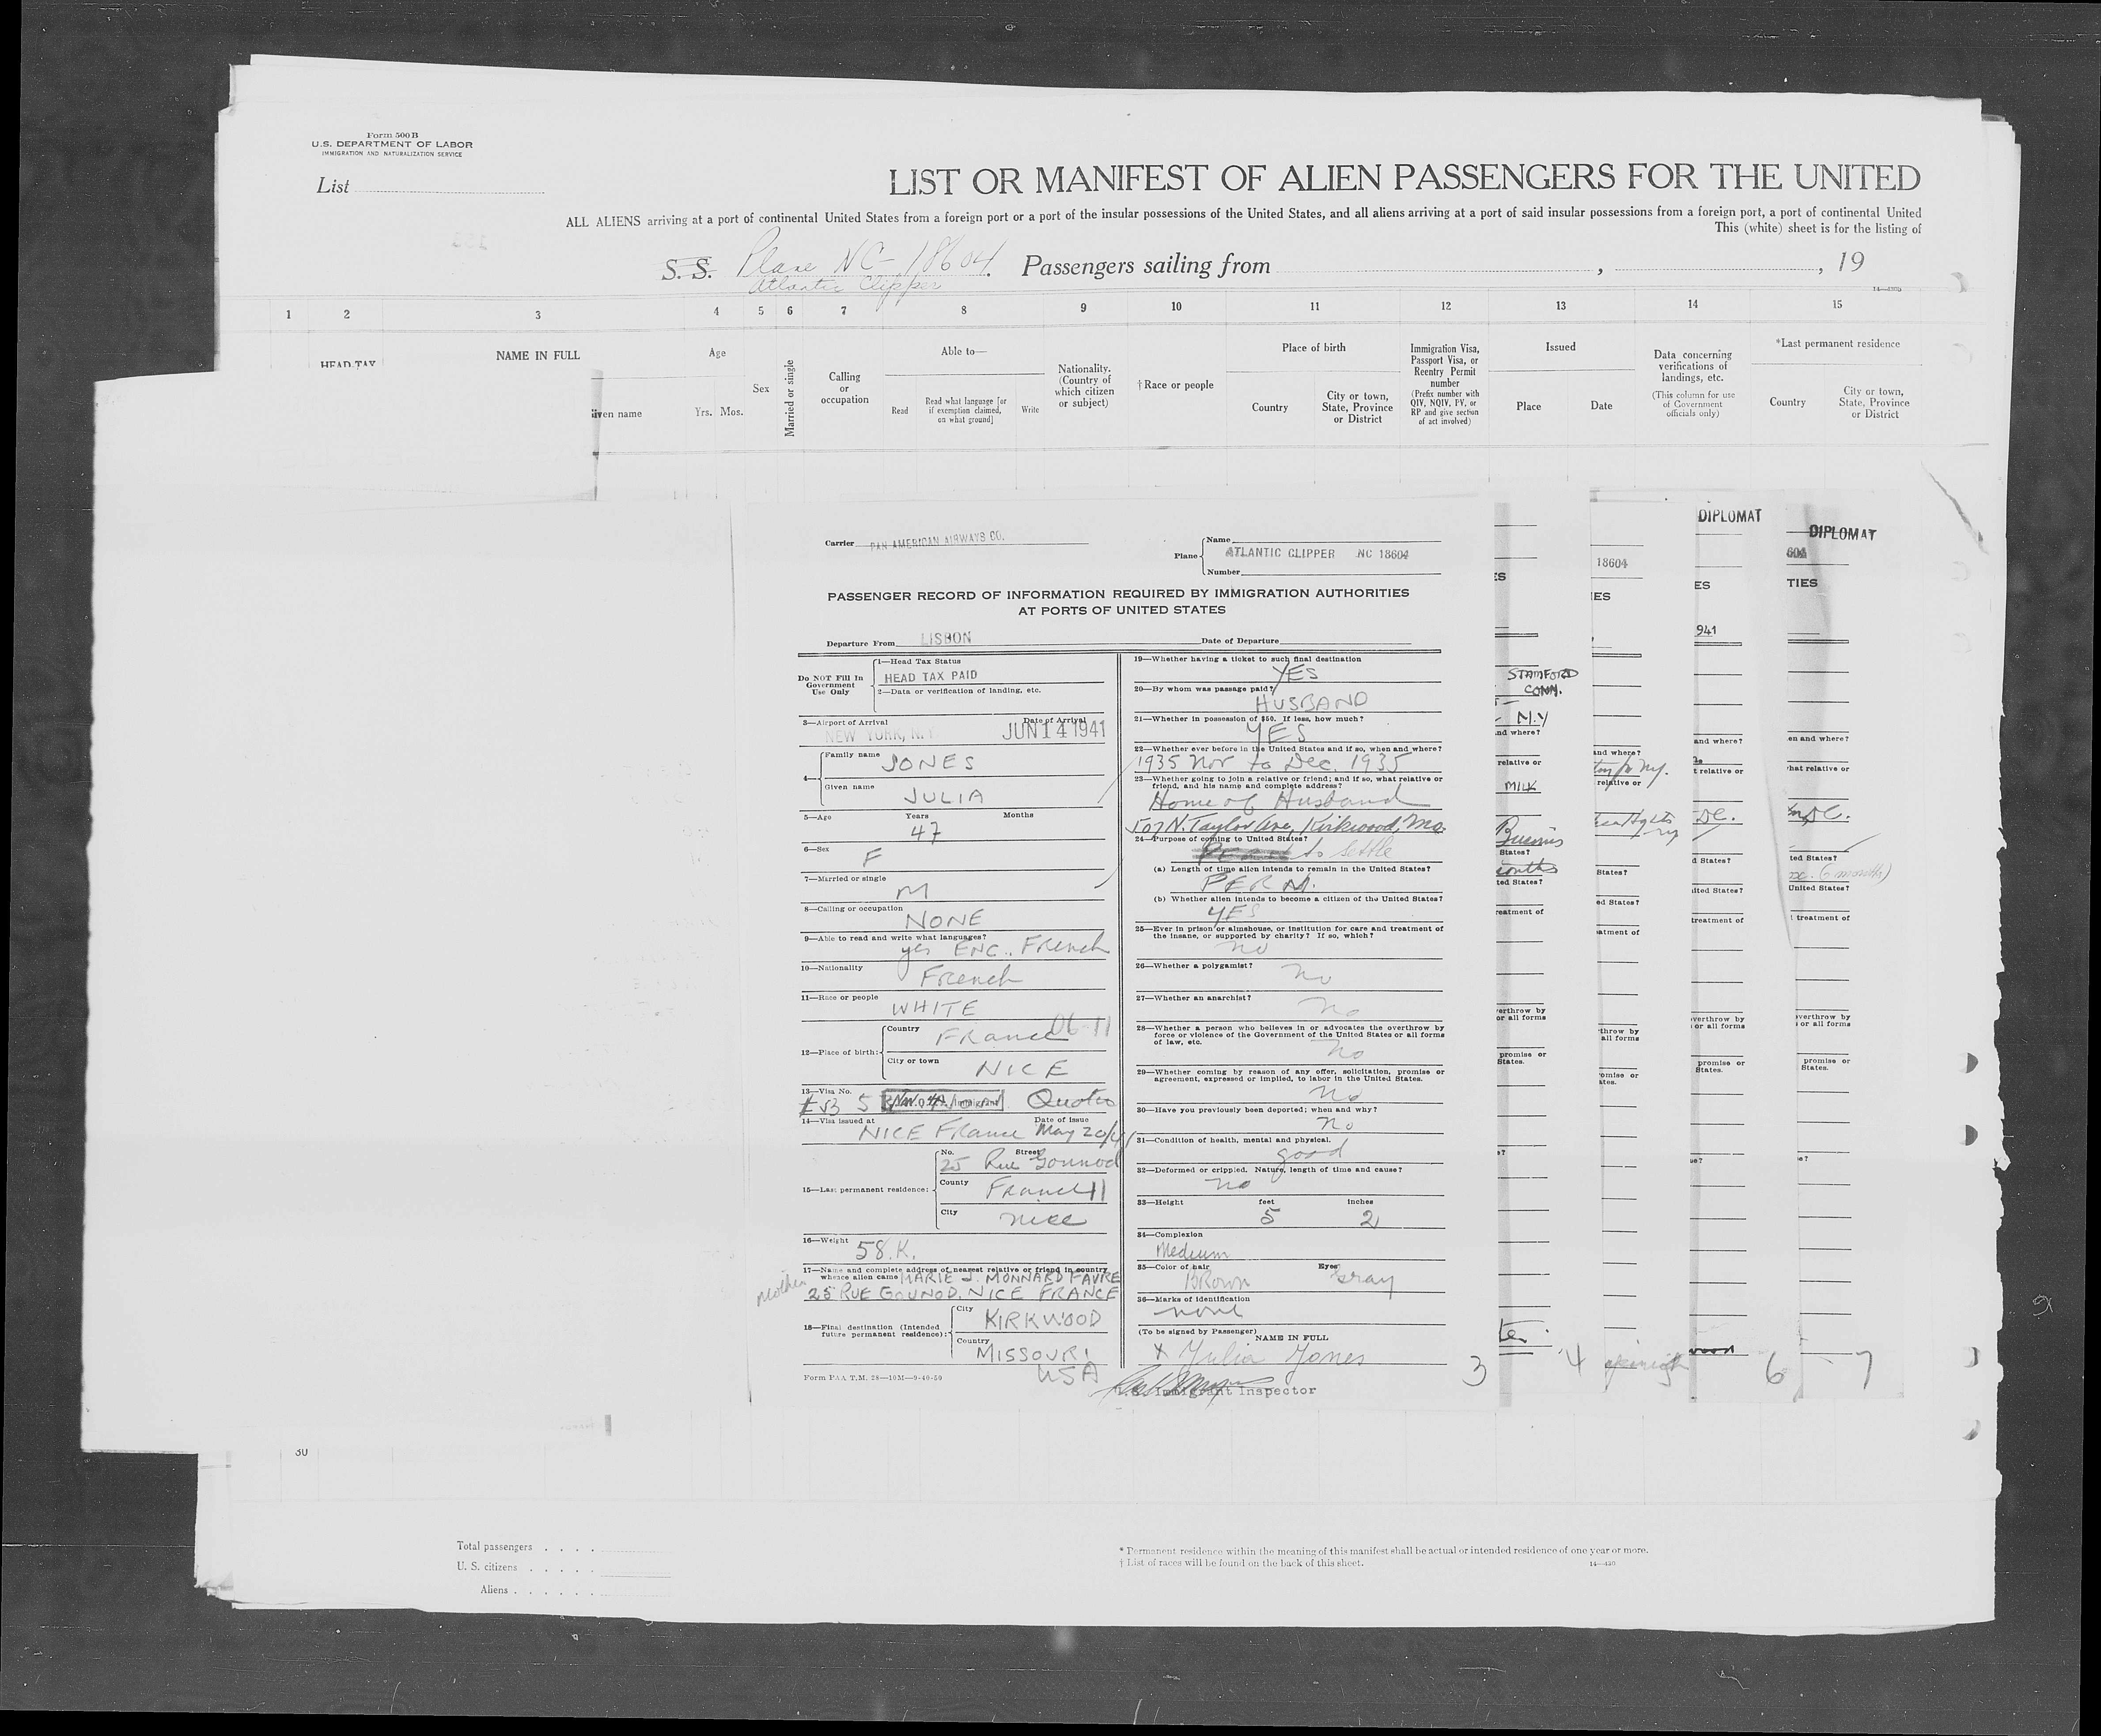 Form 500 B
U.S. DEPARTMENT OF LABOR
IMMIGRATION AND NATURALIZATION SERVICE
List
LIST OR MANIFEST OF ALIEN PASSENGERS FOR THE UNITED
ALL ALIENS arriving at a port of continental United States from a foreign port or a port of the insular possessions of the United States, and all aliens arriving at a port of said insular possessions from a foreign port, a port of continental United
This (white) sheet is for the listing of
S. S. Plane NC-18604. Passengers sailing from , , 19
Atlantic Clipper
1 2 3 4 5 6 7 8 9 10 11 12 13 14 15
HEAD TAX
NAME IN FULL
Given name
Age
Yrs. Mos.
Sex
Married or single
Calling
or
occupation
Able to—
Read
Read what language [or
if exemption claimed,
on what ground]
Write
Nationality.
(Country of
which citizen
or subject)
†Race or people
Place of birth
Country
City or town,
State, Province
or District
Immigration Visa,
Passport Visa, or
Reentry Permit
number
(Prefix number with
QIV, NQIV, PV, or
RP and give section
of act involved)
Issued
Place
Date
Data concerning
verifications of
landings, etc.
(This column for use
of Government
officials only)
*Last permanent residence
Country
City or town,
State, Province
or District
Carrier PAN AMERICAN AIRWAYS CO.
Plane Name
ATLANTIC CLIPPER NC 18604
Number
PASSENGER RECORD OF INFORMATION REQUIRED BY IMMIGRATION AUTHORITIES
AT PORTS OF UNITED STATES
Departure From LISBON Date of Departure
Do NOT Fill In
Government
Use Only
1—Head Tax Status
HEAD TAX PAID
2—Data or verification of landing, etc.
3—Airport of Arrival Date of Arrival
NEW YORK, N.Y. JUN 14 1941
4— Family name JONES
Given name JULIA
5—Age Years Months
47
6—Sex F
7—Married or single M
8—Calling or occupation
NONE
9—Able to read and write what languages?
yes ENG., French
10—Nationality
French
11—Race or people
WHITE
12—Place of birth: Country
France 06-11
City or town
NICE
13—Visa No.
Quota
14—Visa issued at Date of issue
NICE France May 20/41
15—Last permanent residence: No. Street
25 Rue Gounod
County France 11
City Nice
16—Weight 58.K.
17—Name and complete address of nearest relative or friend in country
whence alien came MARIE J. MONNARD FAVRE
Mother 25 RUE GOUNOD, NICE FRANCE
18—Final destination (Intended
future permanent residence): City
KIRKWOOD
Country
MISSOURI
USA
Form PAA T.M. 28—10M—9-40-50
19—Whether having a ticket to such final destination
YES
20—By whom was passage paid?
HUSBAND
21—Whether in possession of $50. If less, how much?
YES
22—Whether ever before in the United States and if so, when and where?
1935 Nov to Dec. 1935
23—Whether going to join a relative or friend; and if so, what relative or
friend, and his name and complete address?
Home of Husband
507 N. Taylor Ave, Kirkwood, Mo.
24—Purpose of coming to United States?
to settle
(a) Length of time alien intends to remain in the United States?
PERM.
(b) Whether alien intends to become a citizen of the United States?
YES
25—Ever in prison or almshouse, or institution for care and treatment of
the insane, or supported by charity? If so, which?
no
26—Whether a polygamist? no
27—Whether an anarchist?
no
28—Whether a person who believes in or advocates the overthrow by
force or violence of the Government of the United States or all forms
of law, etc.
no
29—Whether coming by reason of any offer, solicitation, promise or
agreement, expressed or implied, to labor in the United States.
No
30—Have you previously been deported; when and why?
no
31—Condition of health, mental and physical.
good
32—Deformed or crippled. Nature, length of time and cause?
no
33—Height feet inches
5 2
34—Complexion
Medium
35—Color of hair Eyes
Brown Gray
36—Marks of identification
none
(To be signed by Passenger) NAME IN FULL
x Julia Jones
Immigrant Inspector
3
STAMFORD
CONN.
N.Y
nd where?
relative or
MILK
States?
ted States?
reatment of
verthrow by
or all forms
promise or
States.
4
18604
IES
and where?
relative or
States?
ed States?
atment of
throw by
all forms
omise or
ates.
DIPLOMAT
ES
941
and where?
t relative or
DC.
d States?
ited States?
treatment of
verthrow by
or all forms
promise or
States.
6
DIPLOMAT
604
TIES
en and where?
hat relative or
DC.
ted States?
(6 months)
United States?
treatment of
verthrow by
or all forms
promise or
States.
7
30
Total passengers . . . .
U. S. citizens . . . . .
Aliens . . . . . .
* Permanent residence within the meaning of this manifest shall be actual or intended residence of one year or more.
† List of races will be found on the back of this sheet. 14—420